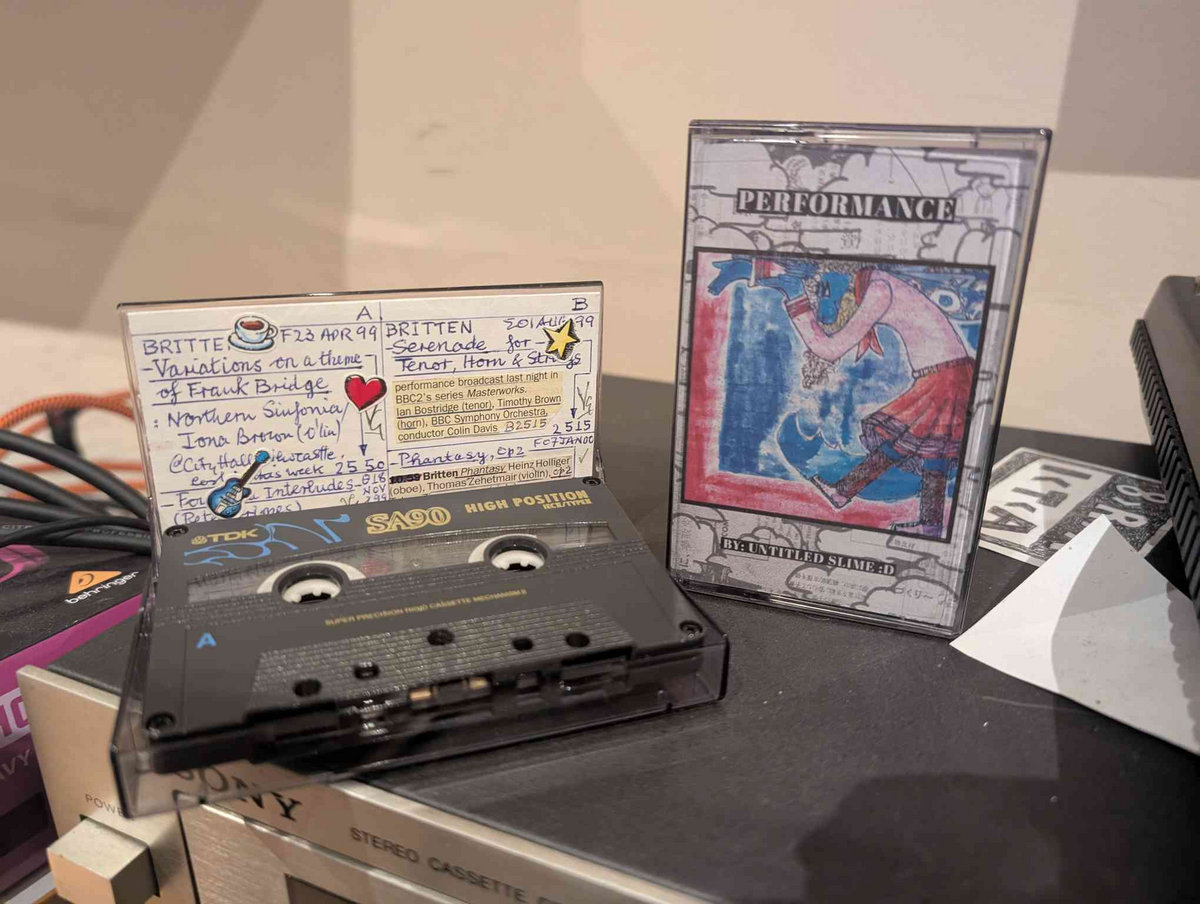 A
BRITTE F23 APR 99
-Variations on a theme
of Frank Bridge
: Northern Sinfonia
Iona Brown (v'lin)
@City Hall
week 25 50
Interludes
B
BRITTEN
99
-Serenade for
Tenor, Horn & Strings
performance broadcast last night in
BBC2's series Masterworks.
Ian Bostridge (tenor), Timothy Brown
(horn), BBC Symphony Orchestra,
conductor Colin Davis B2515
2515
-Phantasy, op2
Britten Phantasy. Heinz Holliger
(oboe), Thomas Zehetmair (violin). op2
TDK SA90 HIGH POSITION
IECII/TYPEII
SUPER PRECISION RIGID CASSETTE MECHANISM
A
PERFORMANCE
BY: UNTITLED SLIME :D
づくり〜
behringer
SONY
STEREO CASSETTE